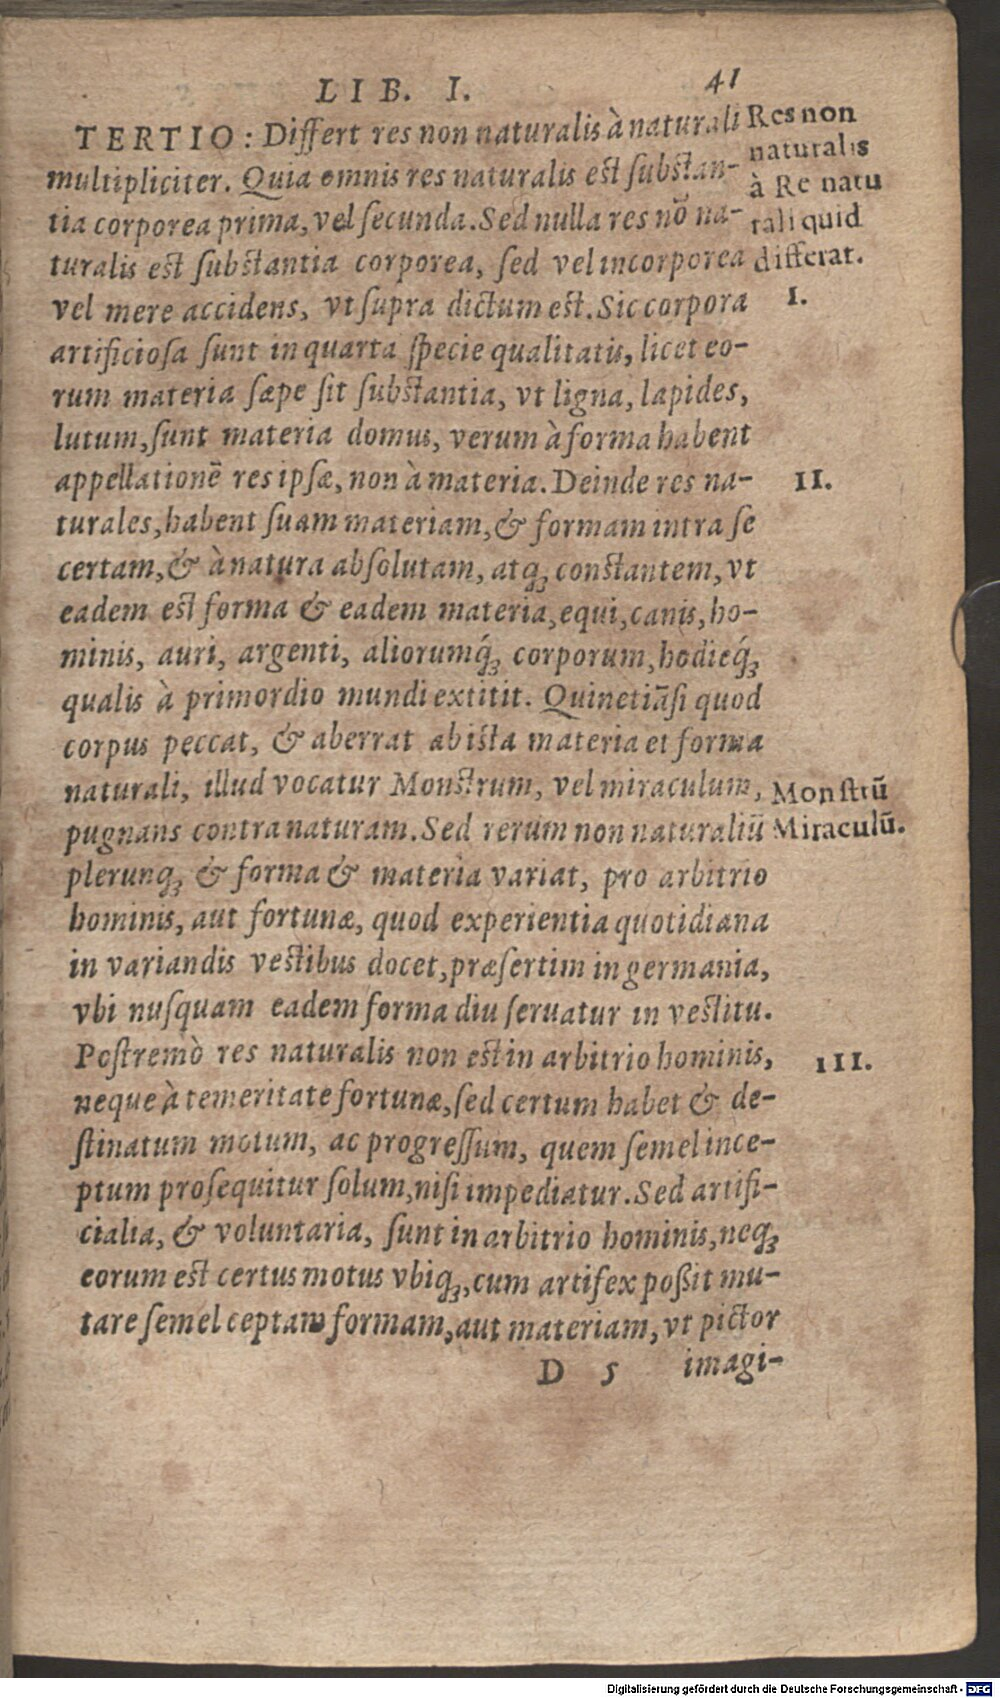 LIB. I. 41
TERTIO: Differt res non naturalis à naturali
multipliciter. Quia omnis res naturalis est substan-
tia corporea prima, vel secunda. Sed nulla res nō na-
turalis est substantia corporea, sed vel incorporea
vel mere accidens, vt supra dictum est. Sic corpora
artificiosa sunt in quarta specie qualitatis, licet eo-
rum materia sæpe sit substantia, vt ligna, lapides,
lutum, sunt materia domus, verum à forma habent
appellationē res ipsæ, non à materia. Deinde res na-
turales, habent suam materiam, & formam intra se
certam, & à natura absolutam, atq; constantem, vt
eadem est forma & eadem materia, equi, canis, ho-
minis, auri, argenti, aliorumq́; corporum, hodieq́;
qualis à primordio mundi extitit. Quinetiā si quod
corpus peccat, & aberrat ab ista materia et forma
naturali, illud vocatur Monstrum, vel miraculum,
pugnans contra naturam. Sed rerum non naturaliū
plerunq; & forma & materia variat, pro arbitrio
hominis, aut fortunæ, quod experientia quotidiana
in variandis vestibus docet, præsertim in germania,
vbi nusquam eadem forma diu seruatur in vestitu.
Postremò res naturalis non est in arbitrio hominis,
neque à temeritate fortunæ, sed certum habet & de-
stinatum motum, ac progressum, quem semel ince-
ptum prosequitur solum, nisi impediatur. Sed artifi-
cialia, & voluntaria, sunt in arbitrio hominis, neq;
eorum est certus motus vbiq;, cum artifex possit mu-
tare semel ceptam formam, aut materiam, vt pictor
D 5 imagi-
Res non
naturalis
à Re natu
rali quid
differat.
I.
II.
Monstrū
Miraculū.
III.
Digitalisierung gefördert durch die Deutsche Forschungsgemeinschaft - DFG